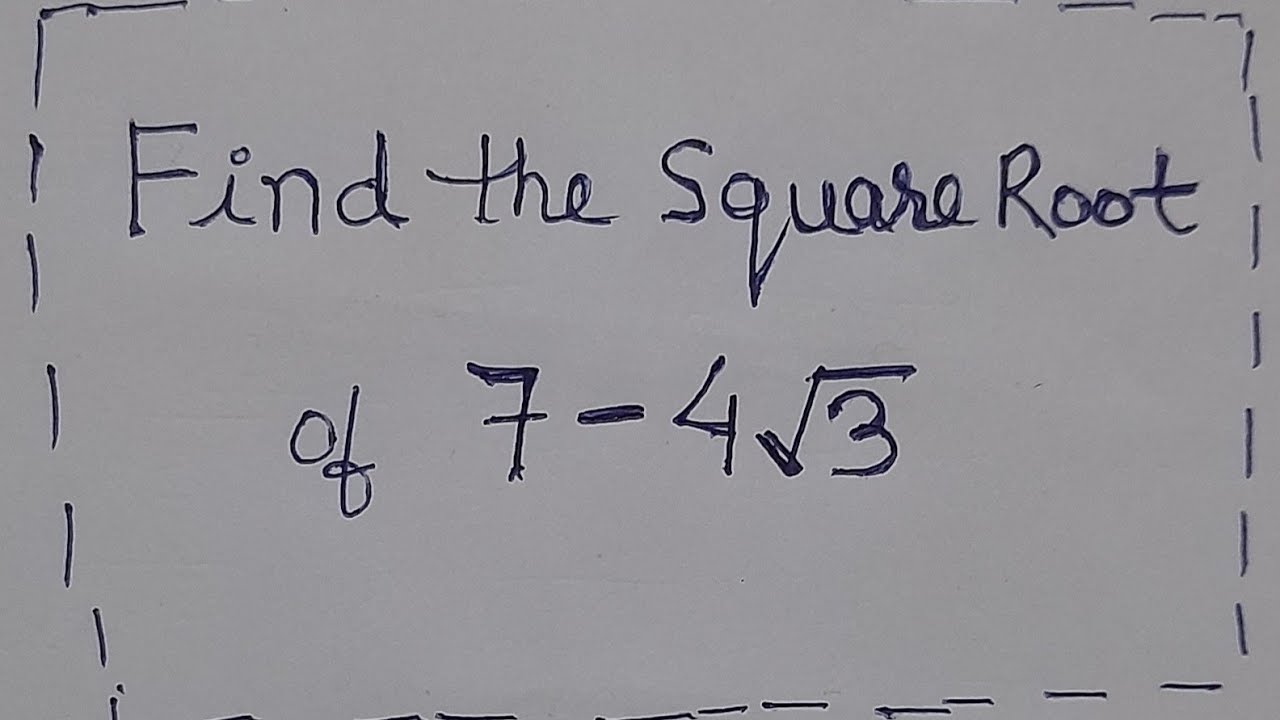 Find the Square Root
of 7 - 4√3